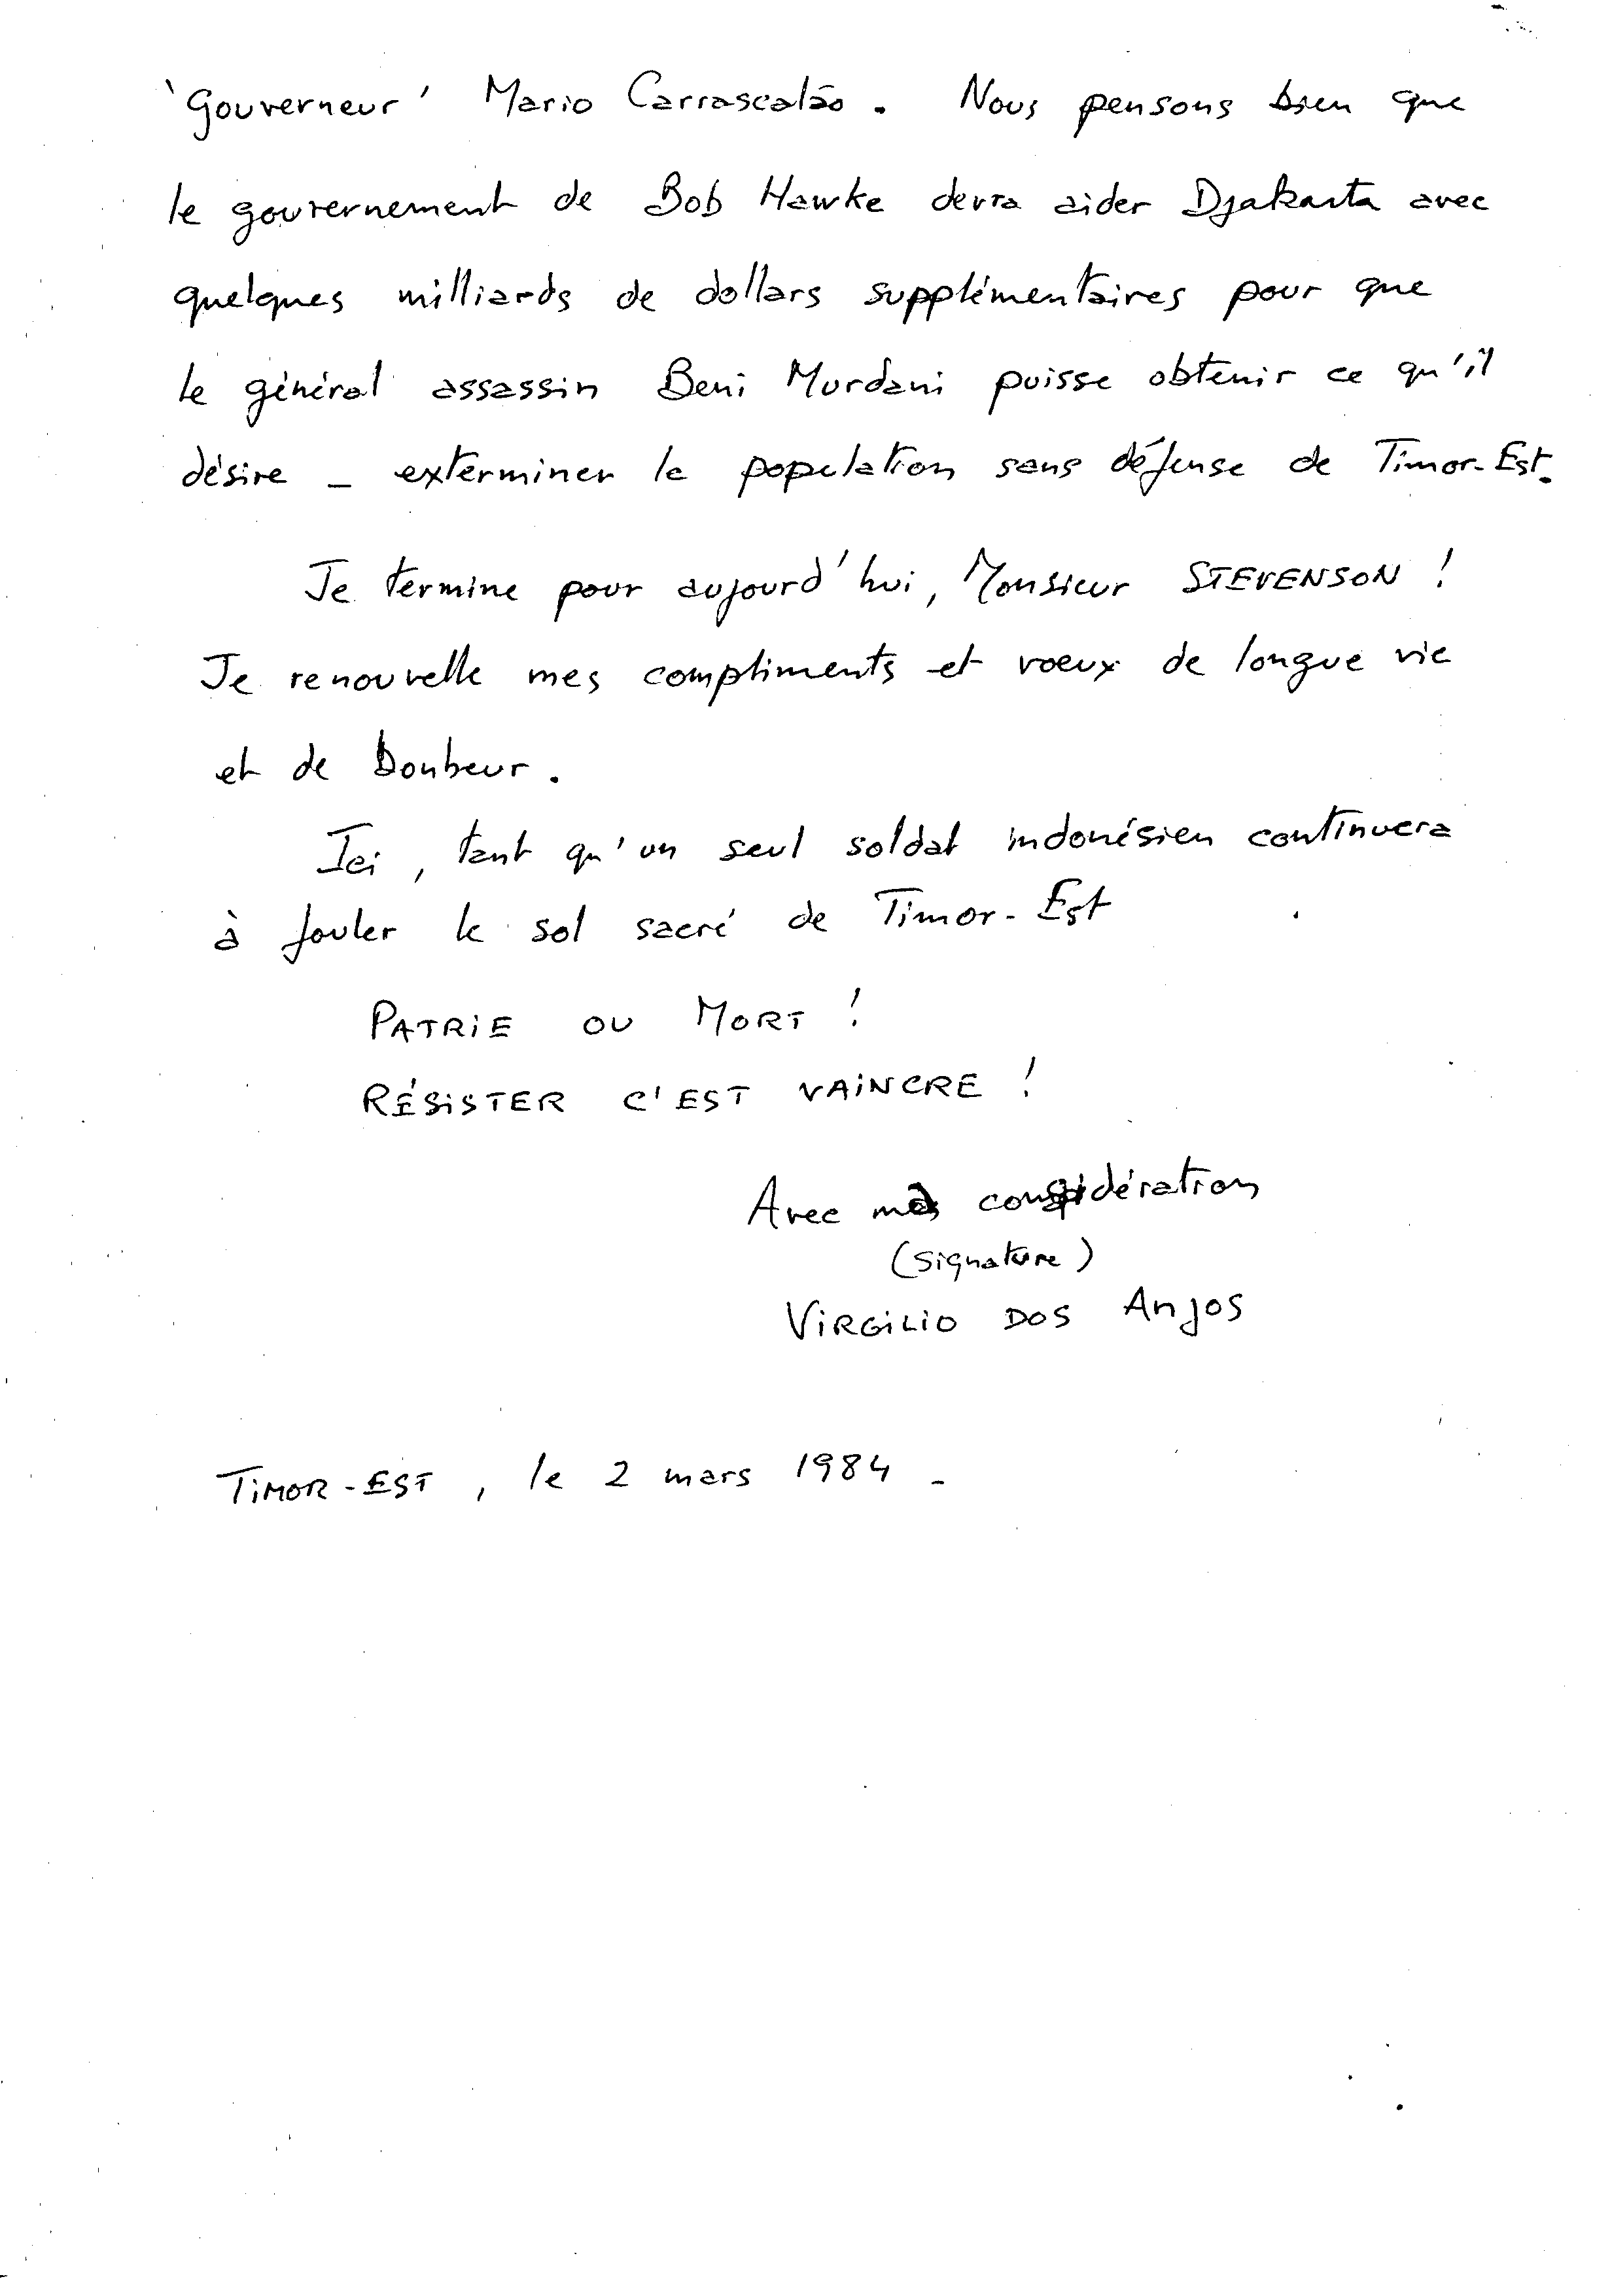 'Gouverneur' Mario Carrascalão. Nous pensons bien que
le gouvernement de Bob Hawke devra aider Djakarta avec
quelques milliards de dollars supplémentaires pour que
le général assassin Beni Murdani puisse obtenir ce qu'il
désire - exterminer la population sans défense de Timor-Est.
Je termine pour aujourd'hui, Monsieur STEVENSON !
Je renouvelle mes compliments et voeux de longue vie
et de bonheur.
Ici, tant qu'un seul soldat indonésien continuera
à fouler le sol sacré de Timor-Est
PATRIE OU MORT !
RÉSISTER C'EST VAINCRE !
Avec ma considération
(signature)
VIRGILIO DOS ANJOS
TIMOR-EST, le 2 mars 1984 -